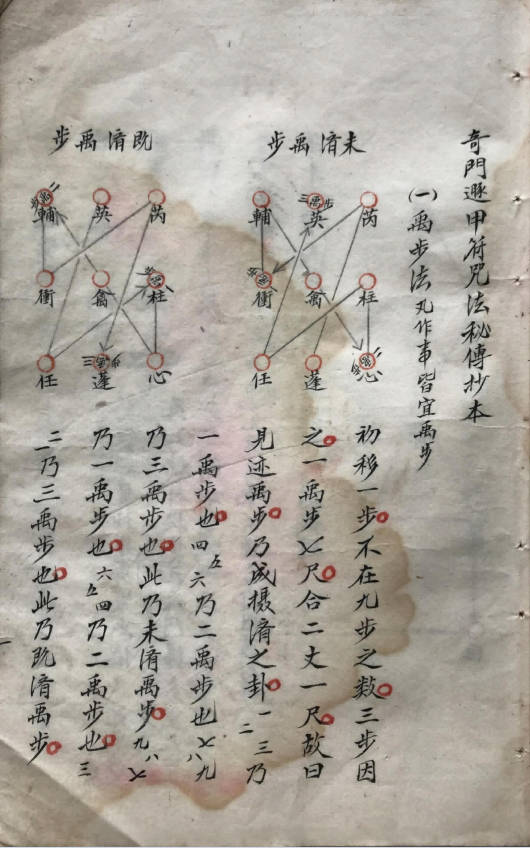 奇門遯甲符咒法秘傳抄本
(一)禹步法 凡作事皆宜禹步
未濟禹步
芮 英 輔
柱 禽 衝
心 蓬 任
既濟禹步
芮 英 輔
柱 禽 衝
心 蓬 任
初移一步不在九步之数三步因
之一禹步七尺合二丈一尺故曰
見迹禹步乃成摄濟之卦一二三乃
一禹步也四五六乃二禹步也七八九
乃三禹步也此乃未濟禹步九八七
乃一禹步也六五四乃二禹步也三
二一乃三禹步也此乃既濟禹步